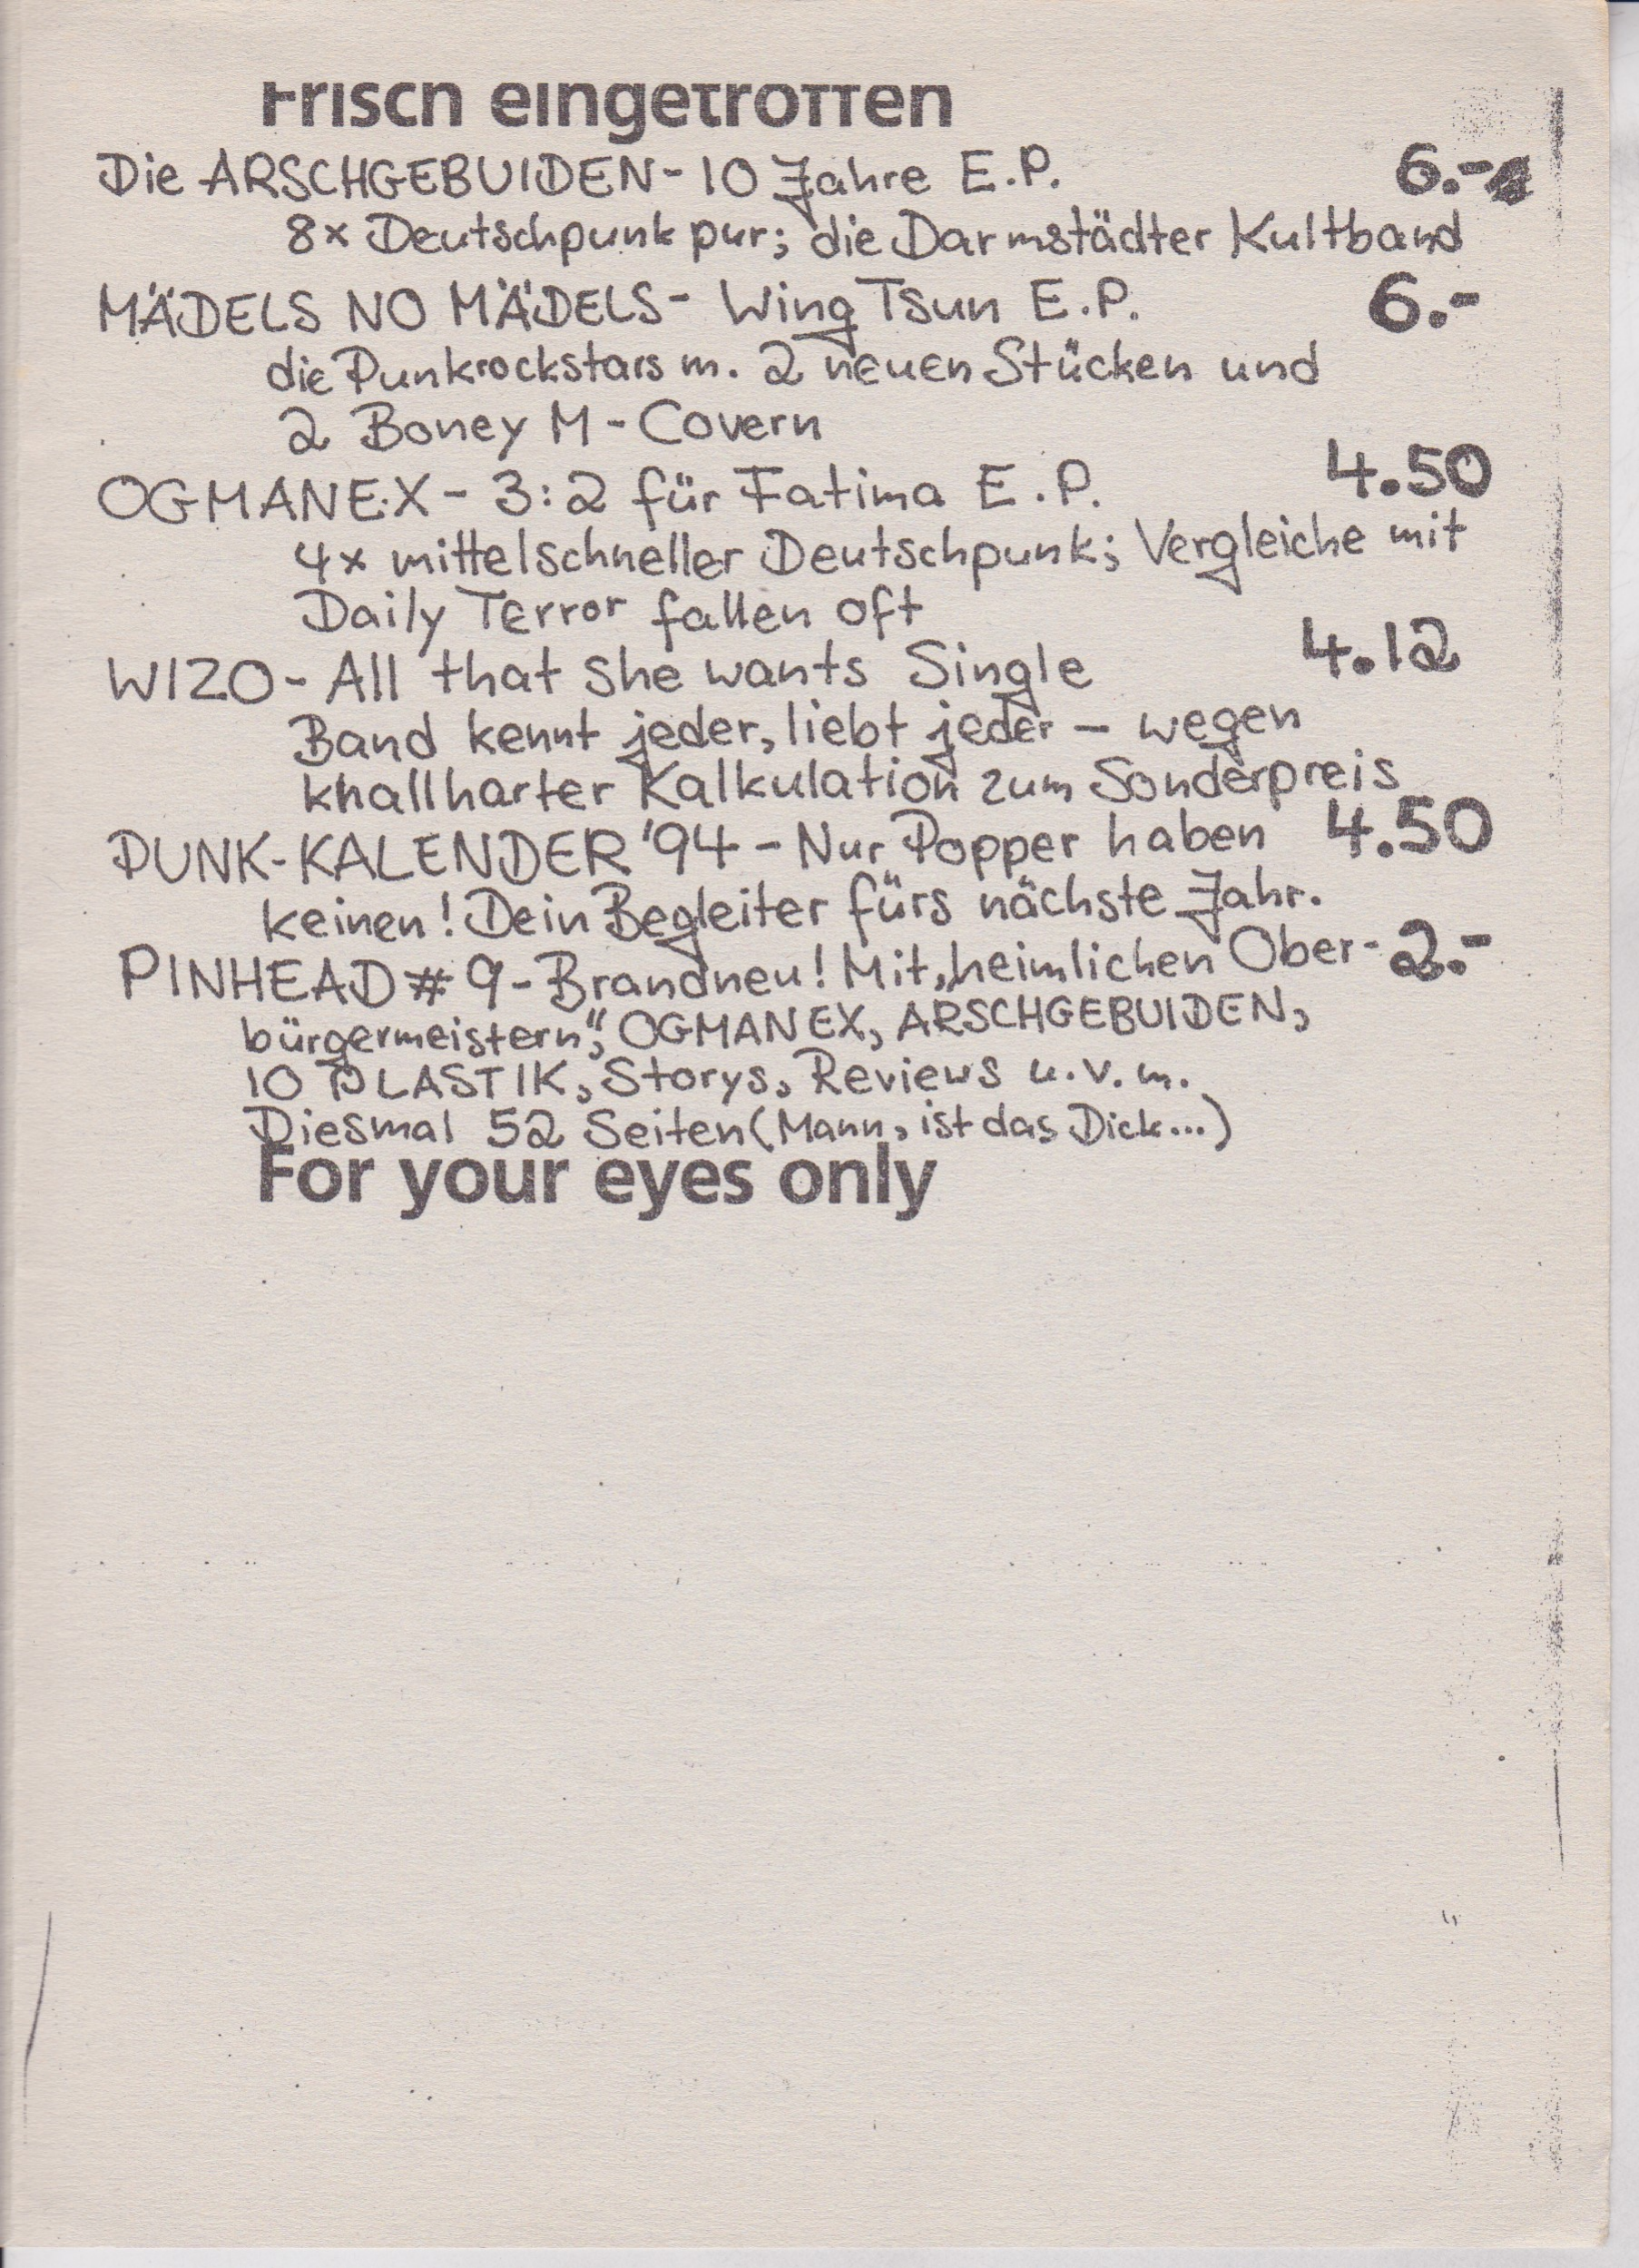 Frisch eingetroffen
Die ARSCHGEBUIDEN - 10 Jahre E.P. 6.-
8x Deutschpunk pur; die Darmstädter Kultband
MÄDELS NO MÄDELS - Wing Tsun E.P. 6.-
die Punkrockstars m. 2 neuen Stücken und
2 Boney M - Covern
OGMANEX - 3:2 für Fatima E.P. 4.50
4x mittelschneller Deutschpunk; Vergleiche mit
Daily Terror fallen oft
WIZO - All that she wants Single 4.12
Band kennt jeder, liebt jeder - wegen
knallharter Kalkulation zum Sonderpreis
PUNK-KALENDER '94 - Nur Popper haben 4.50
keinen! Dein Begleiter fürs nächste Jahr.
PINHEAD # 9 - Brandneu! Mit „heimlichen Ober- 2.-
bürgermeistern“, OGMANEX, ARSCHGEBUIDEN,
10 PLASTIK, Storys, Reviews u.v.m.
Diesmal 52 Seiten (Mann, ist das Dick...)
For your eyes only